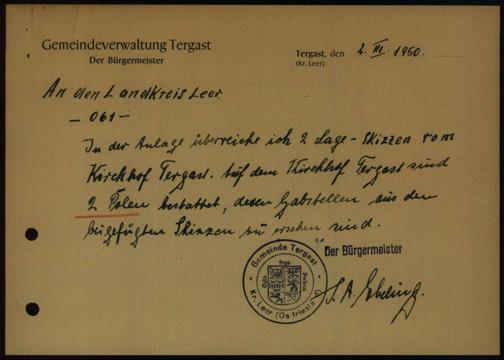 Gemeindeverwaltung Tergast
Der Bürgermeister
Tergast, den 2. III. 1950.
(Kr. Leer)
An den Landkreis Leer
- 061 -
In der Anlage überreiche ich 2 Lage-Skizzen vom
Kirchhof Tergast. Auf dem Kirchhof Tergast sind
2 Polen bestattet, deren Gabstellen aus den
beigefügten Skizzen zu ersehen sind.
Der Bürgermeister
Gemeinde Tergast
Kr. Leer (Ostfriesld)
I. A. Ebeling.